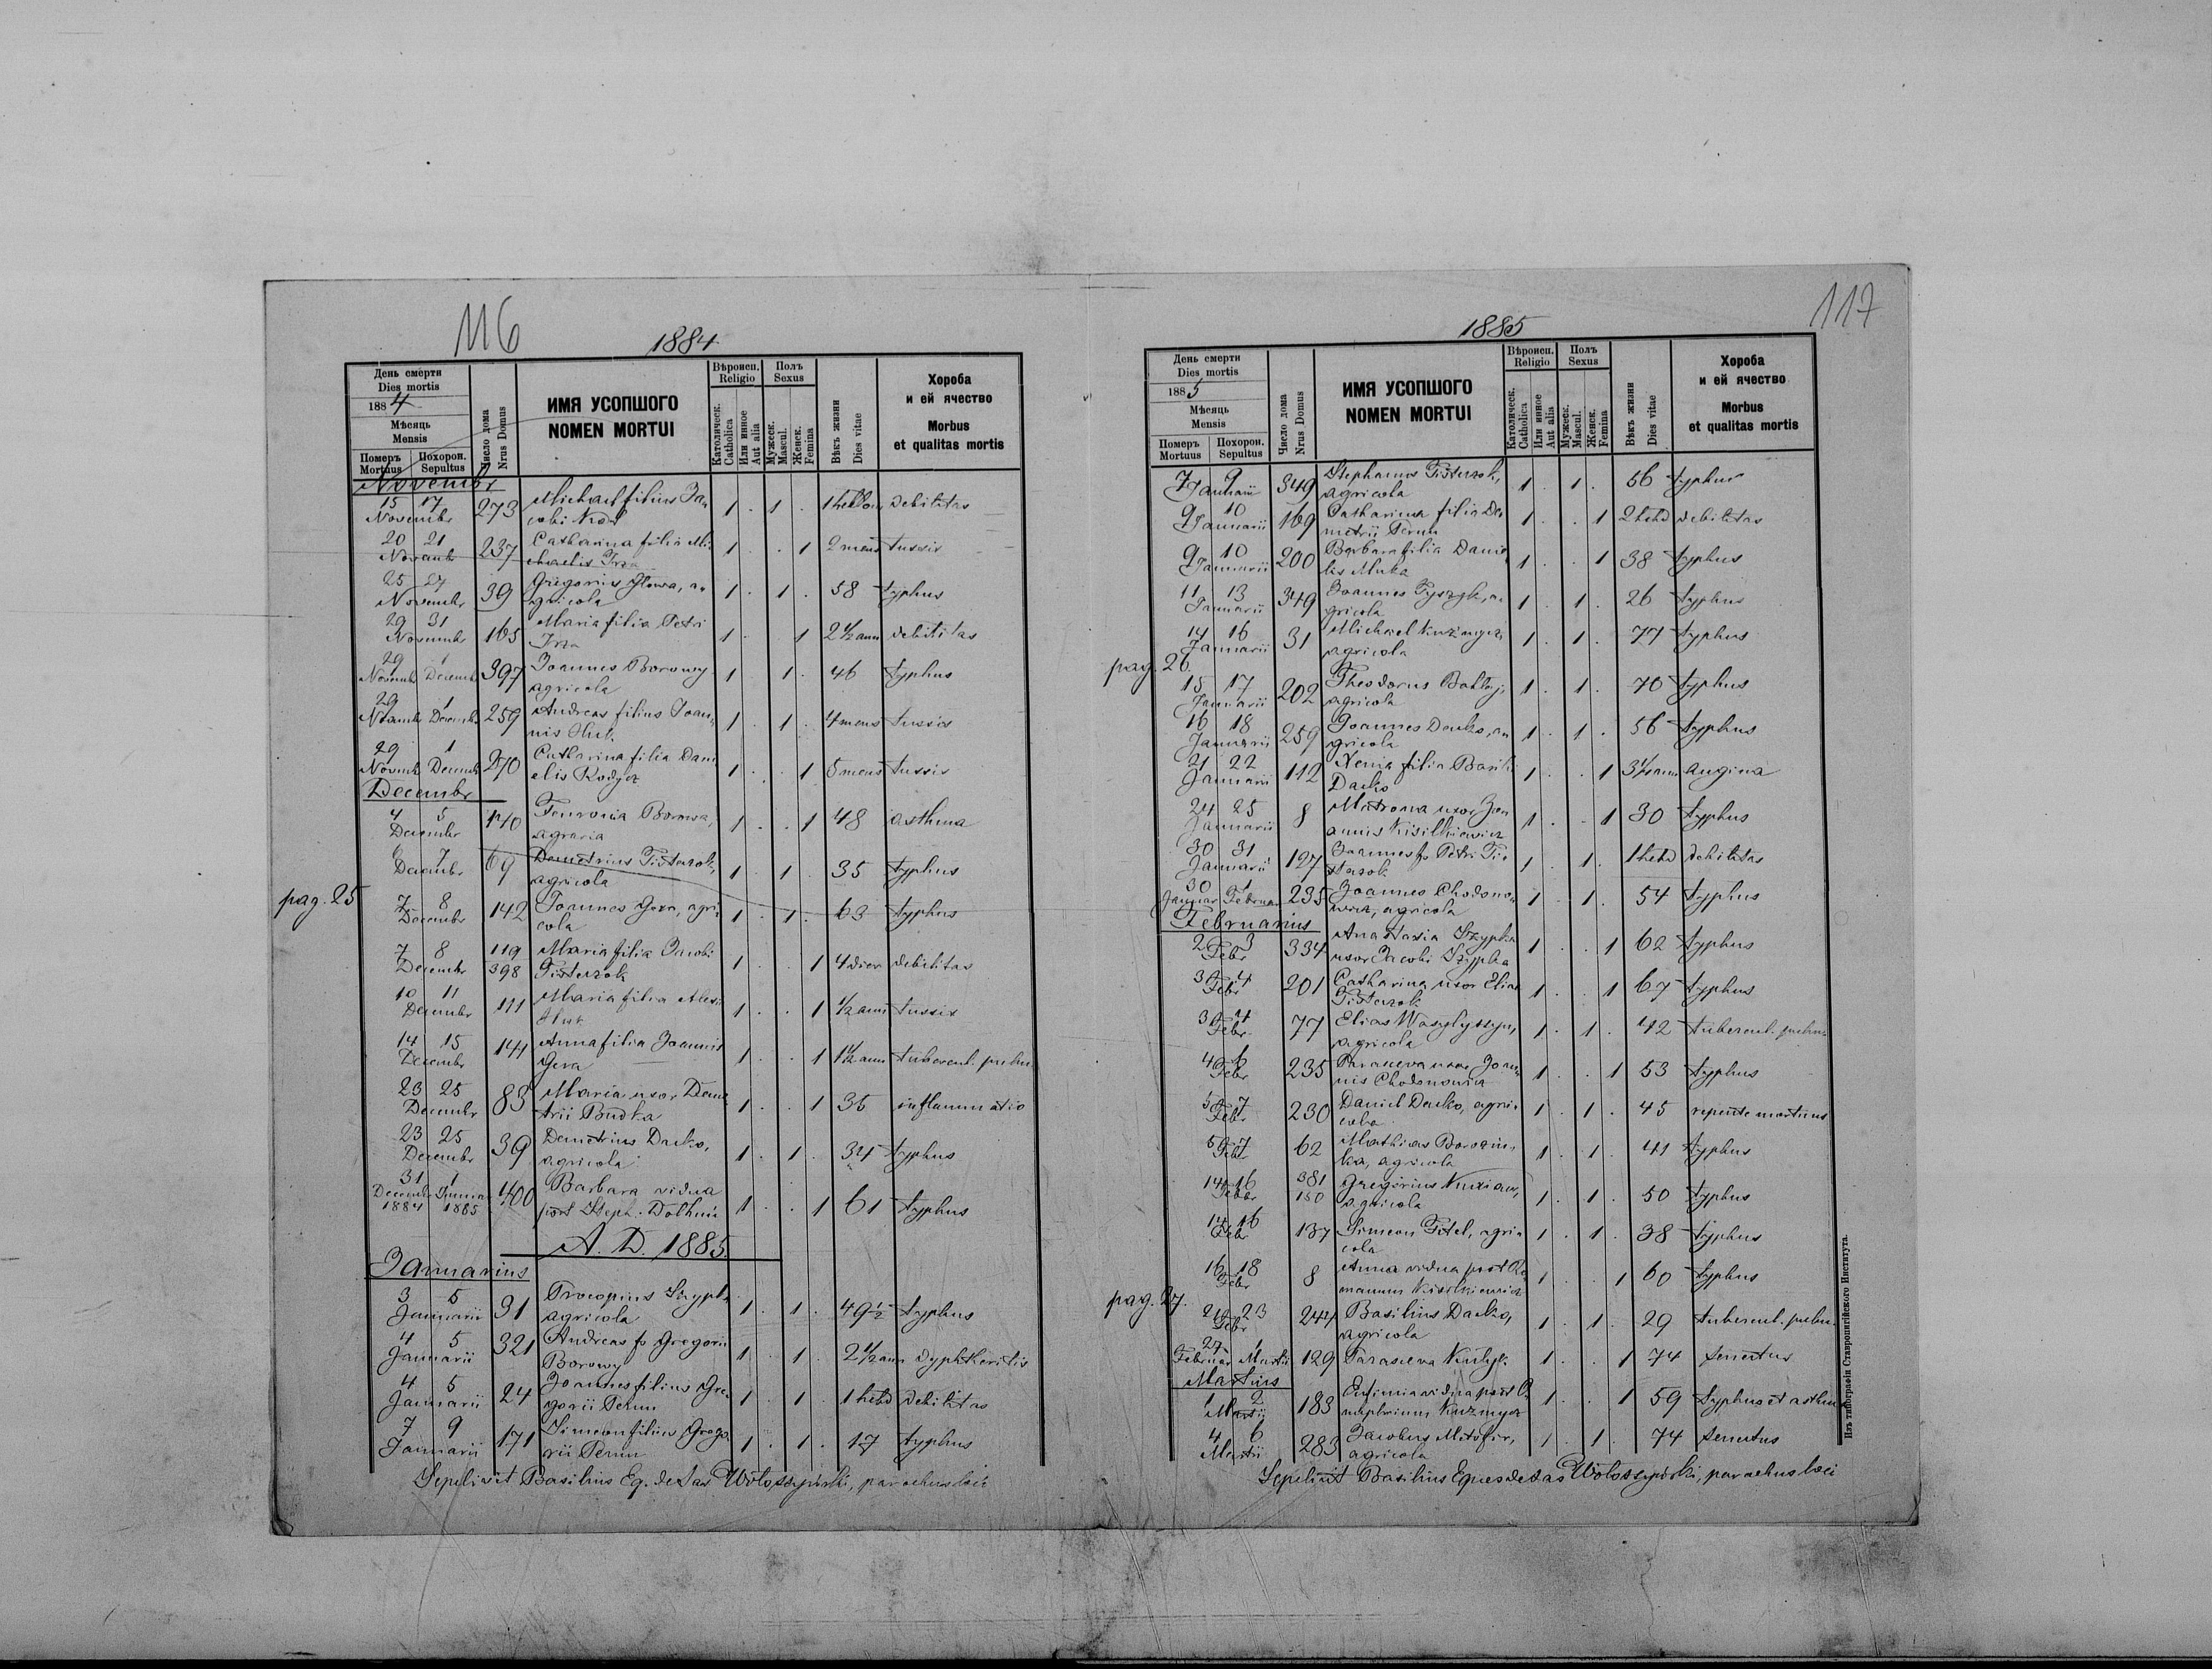 116
1884
День смерти
Dies mortis
1884
Мѣсяць
Mensis
Померъ Mortuus
Похорон. Sepultus
Число дома
Nrus Domus
ИМЯ УСОПШОГО
NOMEN MORTUI
Вѣроисп.
Religio
Католическ.
Catholica
Или инное
Aut alia
Полъ
Sexus
Мужеск.
Mascul.
Женск.
Femina
Вѣкъ жизни
Dies vitae
Хороба
и ей ячество
Morbus
et qualitas mortis
Novembr
15 17 Novembr 273 Michael filius Ja-
cobi 1 . 1 . 1 hebdom debilitas
20 21 Novembr 237 Catharina filia Mi-
chaelis Irza 1 . . 1 2 mens tussis
25 27 Novembr 39 Gregorius Glowa, a-
gricola 1 . 1 . 58 typhus
29 31 Novembr 165 Maria filia Petri
Irza 1 . . 1 2 1/2 ann debilitas
29 Novemb 1 Decemb 397 Joannes Borowy
agricola 1 . 1 . 46 typhus
29 Novemb 1 Decemb 259 Andreas filius Joan-
nis 1 . 1 . 4 mens tussis
29 Novemb 1 Decemb 270 Catharina filia Dani
elis 1 . . 1 5 mens tussis
Decembr
4 5 Decembr 170 Fevronia Borowa,
agraria 1 . . 1 48 asthma
6 7 Decembr 69 Demetrius Tisterzok,
agricola 1 . 1 . 35 typhus
pag. 25
7 8 Decembr 142 Joannes Gera, agri
cola 1 . 1 . 63 typhus
7 8 Decembr 119
398 Maria filia Jacobi
Tisterzok 1 . . 1 4 dier debilitas
10 11 Decembr 111 Maria filia Alexii
1 . . 1 1/2 ann tussis
14 15 Decembr 141 Anna filia Joannis
Gera 1 . . 1 1 1/2 ann tubercul. pulm.
23 25 Decembr 83 Maria uxor Deme
trii Budka 1 . . 1 36 inflammatio
23 25 Decembr 39 Demetrius Dacko,
agricola 1 . 1 . 34 typhus
31 Decembr 1884 1 Januar 1885 400 Barbara vidua
post Steph. 1 . . 1 61 typhus
A. D. 1885.
Januarius
3 5 Januarii 91 Procopius Szypka
agricola 1 . 1 . 49 1/2 typhus
4 5 Januarii 321 Andreas fs Gregorii
Borowy 1 . 1 . 2 1/2 ann dyphtheritis
4 5 Januarii 24 Joannes filius Gre-
gorii Perun 1 . 1 . 1 hebd debilitas
7 9 Januarii 171 Simeon filius Grego
rii Perun 1 . 1 . 17 typhus
Sepelivit Basilius Eq. de Sas Wołoszyński, parochus loci
117
1885
День смерти
Dies mortis
1885
Мѣсяць
Mensis
Померъ Mortuus
Похорон. Sepultus
Число дома
Nrus Domus
ИМЯ УСОПШОГО
NOMEN MORTUI
Вѣроисп.
Religio
Католическ.
Catholica
Или инное
Aut alia
Полъ
Sexus
Мужеск.
Mascul.
Женск.
Femina
Вѣкъ жизни
Dies vitae
Хороба
и ей ячество
Morbus
et qualitas mortis
7 9 Januarii 349 Stephanus Tisterzok,
agricola 1 . 1 . 56 typhus
9 10 Januarii 169 Catharina filia De
metrii Perun 1 . . 1 2 hebd debilitas
9 10 Januarii 200 Barbara filia Danie
lis Muka 1 . . 1 38 typhus
11 13 Januarii 349 Joannes Tyszyk, a-
gricola 1 . 1 . 26 typhus
14 16 Januarii 31 Michael Kuźmycz
agricola 1 . 1 . 77 typhus
pag. 26
15 17 Januarii 202 Theodorus
agricola 1 . 1 . 70 typhus
16 18 Januarii 259 Joannes Dacko, a
gricola 1 . 1 . 56 typhus
21 22 Januarii 112 Xenia filia Basilii
Dacko 1 . . 1 3 1/2 ann angina
24 25 Januarii 8 Matrona uxor Jo
annis Kisilkiewicz 1 . . 1 30 typhus
30 31 Januarii 127 Joannes fs Petri Ti-
sterzok 1 . 1 . 1 hebd debilitas
30 Januar 1 Februar 235 Joannes Chodono-
wicz, agricola 1 . 1 . 54 typhus
Februarius
2 3 Febr 334 Anastasia Szypka
uxor Jacobi Szypka 1 . . 1 62 typhus
3 4 Febr 201 Catharina uxor Eliae
Tisterzok 1 . . 1 67 typhus
3 4 Febr 77 Elias Wasylyszyn,
agricola 1 . 1 . 42 tubercul. pulm.
4 6 Febr 235 Parasceva uxor Joan-
nis Chodonowicz 1 . . 1 53 typhus
5 7 Febr 230 Daniel Dacko, agri-
cola 1 . 1 . 45 repente mortuus
5 7 Febr 62 Mathias
agricola 1 . 1 . 41 typhus
14 16 Febr 381
150 Gregorius
agricola 1 . 1 . 50 typhus
14 16 Febr 137 Simeon Titel, agri-
cola 1 . 1 . 38 typhus
16 18 Febr 8 Anna vidua post Ro
manum Kisilkiewicz 1 . . 1 60 typhus
pag. 27.
21 23 Febr 244 Basilius Dacko,
agricola 1 . 1 . 29 tubercul. pulm.
27 Februar 1 Martii 129 Parasceva Kulyk 1 . . 1 74 senectus
Martius
1 2 Martii 183 Eufimia vidua post O
nuphrium Kuźmycz 1 . . 1 59 typhus et asthma
4 6 Martii 283 Jacobus
agricola 1 . 1 . 74 senectus
Sepelivit Basilius Eques de Sas Wołoszyński, parochus loci
Изъ типографіи Ставропигійского Института.